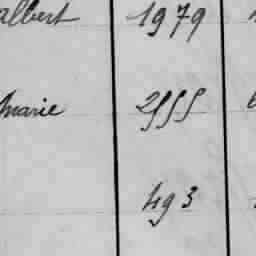 albert 1979
marie 2555
493